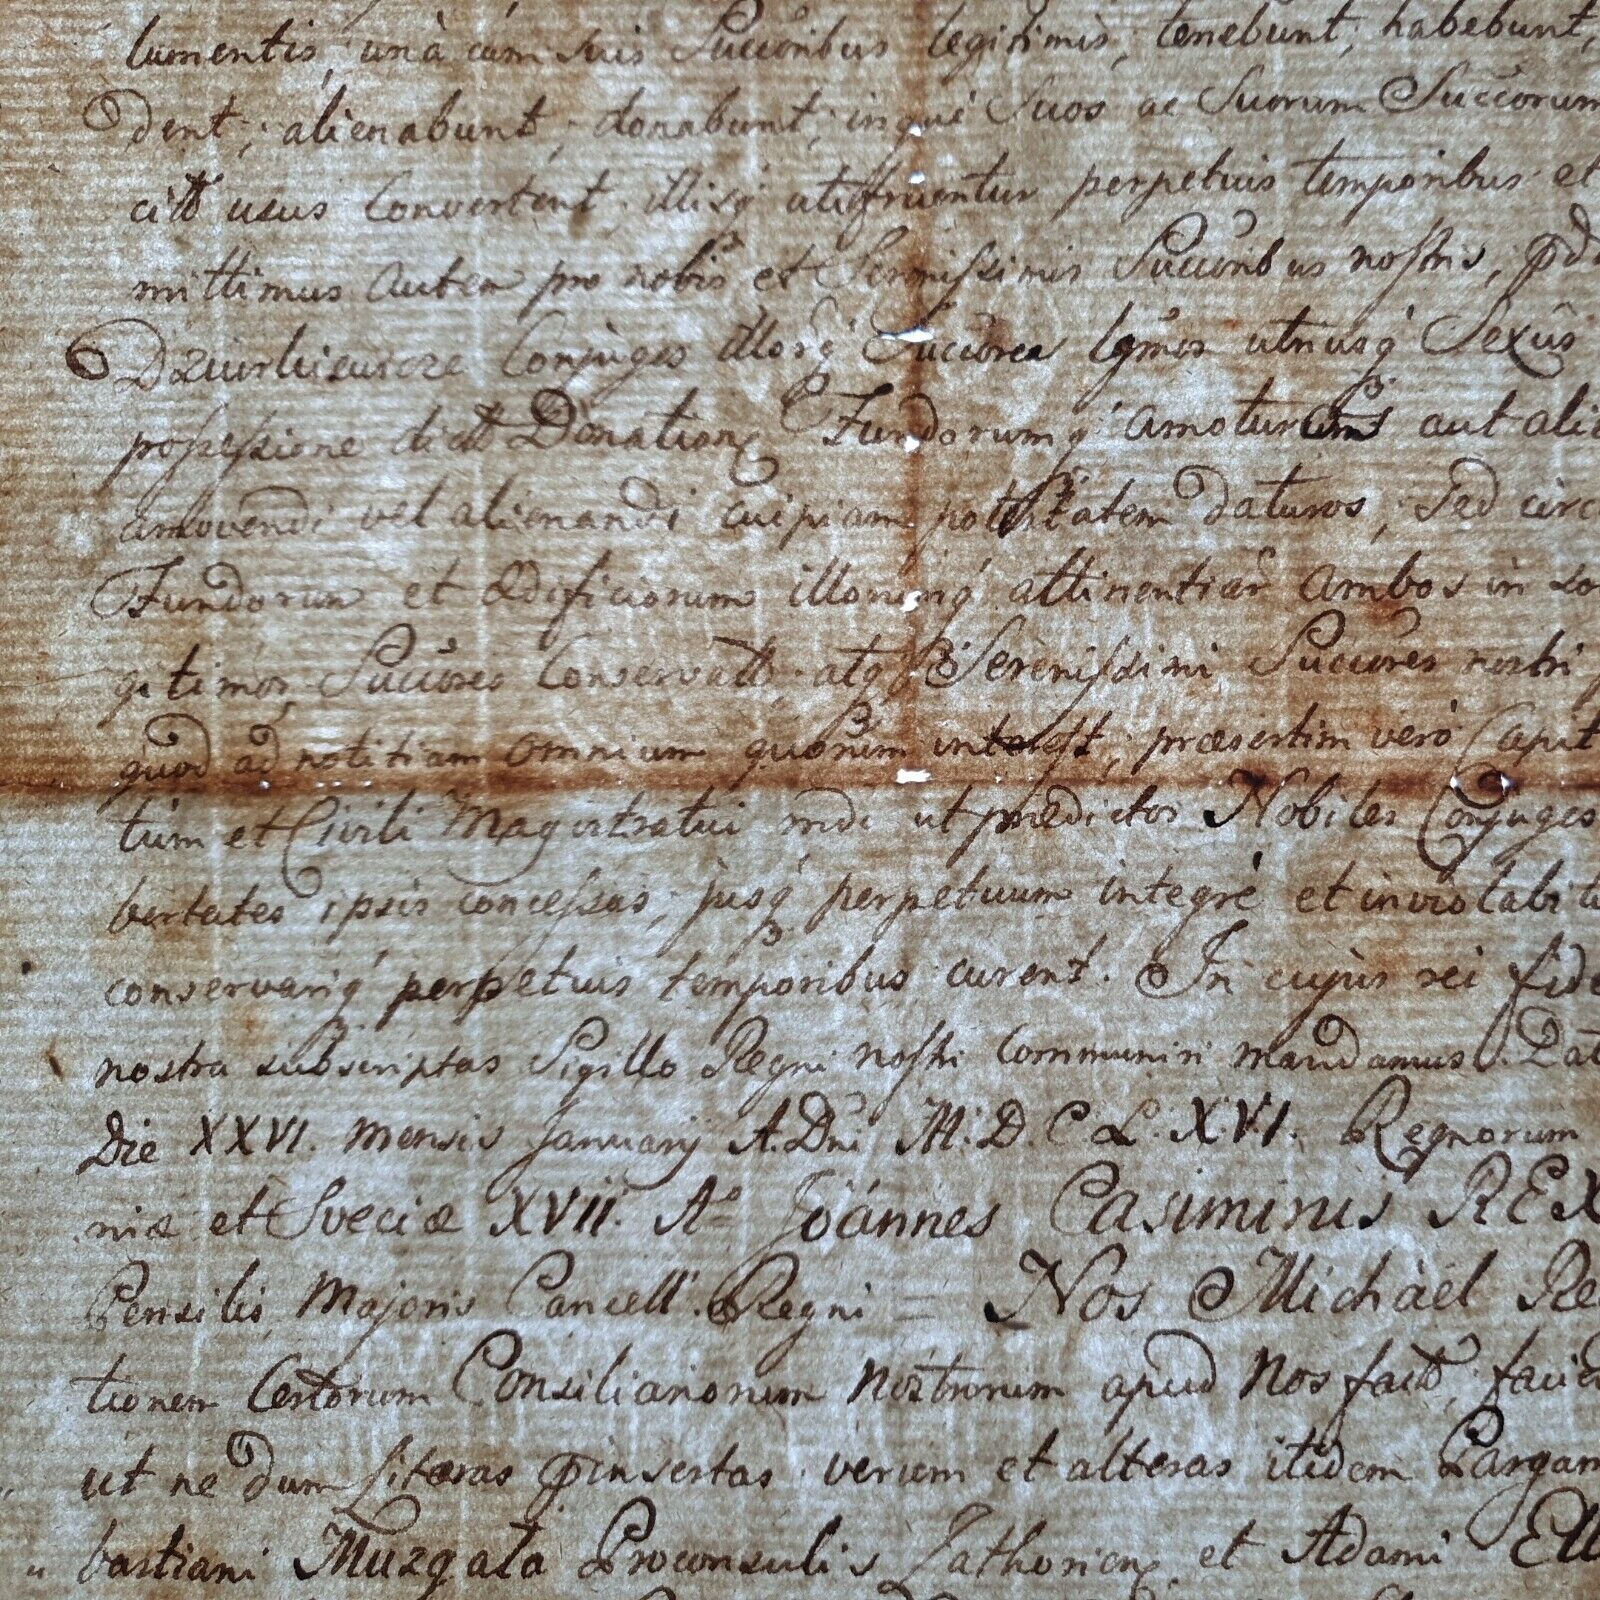 lumentis, unà cum suis Succoribus legitimis, tenebunt, habebunt,
dent, alienabunt, donabunt, inque Suos ac Suorum Succorum
usus Convertent illisq perpetuis temporibus et
mittimus autem pro nobis et Sermissimis Succoribus nostris,
Conjuges illosq Succores Lgmos utriusq Sexûs
possessione Donationq Fundorumq amoturos aut
amovendi vel alienandi cuipiam potestatem daturos, Sed circ
Fundorum et Ædificiorum attinentias ambos in
gitimos Succores Conservatt atq Serenissimi Succores nostri
quod ad notitiam omnium quorum interest, præsertim verò Capit
tum et Civili Magistratui ut prædictos Nobiles Conjuges
bertates ipsis concessas, jusq perpetuum integré et inviolabi
conservariq perpetuis temporibus curent. In cujus rei fide
nostra subscriptas Sigillo Regni nostri Communiri mandamus. Dat
Die XXVI. mensis Januarij A. Dni M.D.C.L.X.V.I. Regnorum
niæ et Sveciæ XVII. Ao Joánnes Casimirus REX
Pensilis Majoris Cancell. Regni = Nos Michàél Re
tionem Certorum Consiliariorum Nostrorum apud Nos
ut ne dum Literas pinsertas verum et alteras itidem Pargam
bastiani Muzgata Proconsulis et Adami